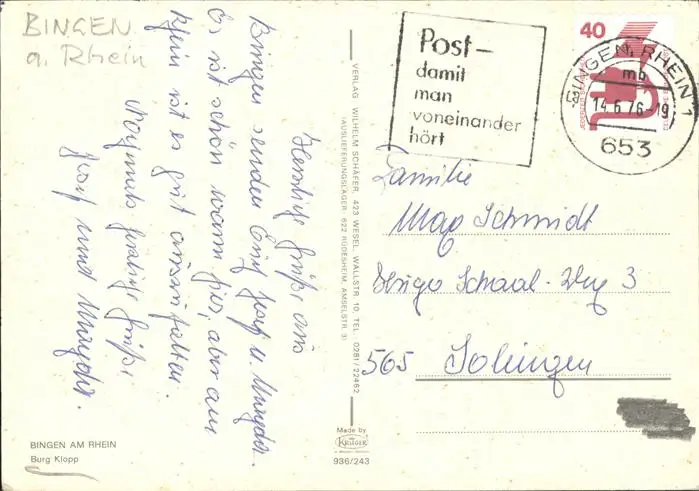 BINGEN
a. Rhein
Herzliche Grüße aus
Bingen senden Euch Josef u.
Es ist schön warm hier, aber am
Rhein ist es gut auszuhalten.
Nochmals herzliche Grüße
Josef und
BINGEN AM RHEIN
Burg Klopp
VERLAG WILHELM SCHÄFER, 423 WESEL, WALLSTR. 10, TEL. 0281/22462
(AUSLIEFERUNGSLAGER: 622 RÜDESHEIM, AMSELSTR. 3)
Made by
KRÜGER
936/243
Post-
damit
man
voneinander
hört
40
BINGEN, RHEIN 1
mb
14.6.76-19
653
Familie
Max Schmidt
Hugo Schaal-Weg 3
565 Solingen